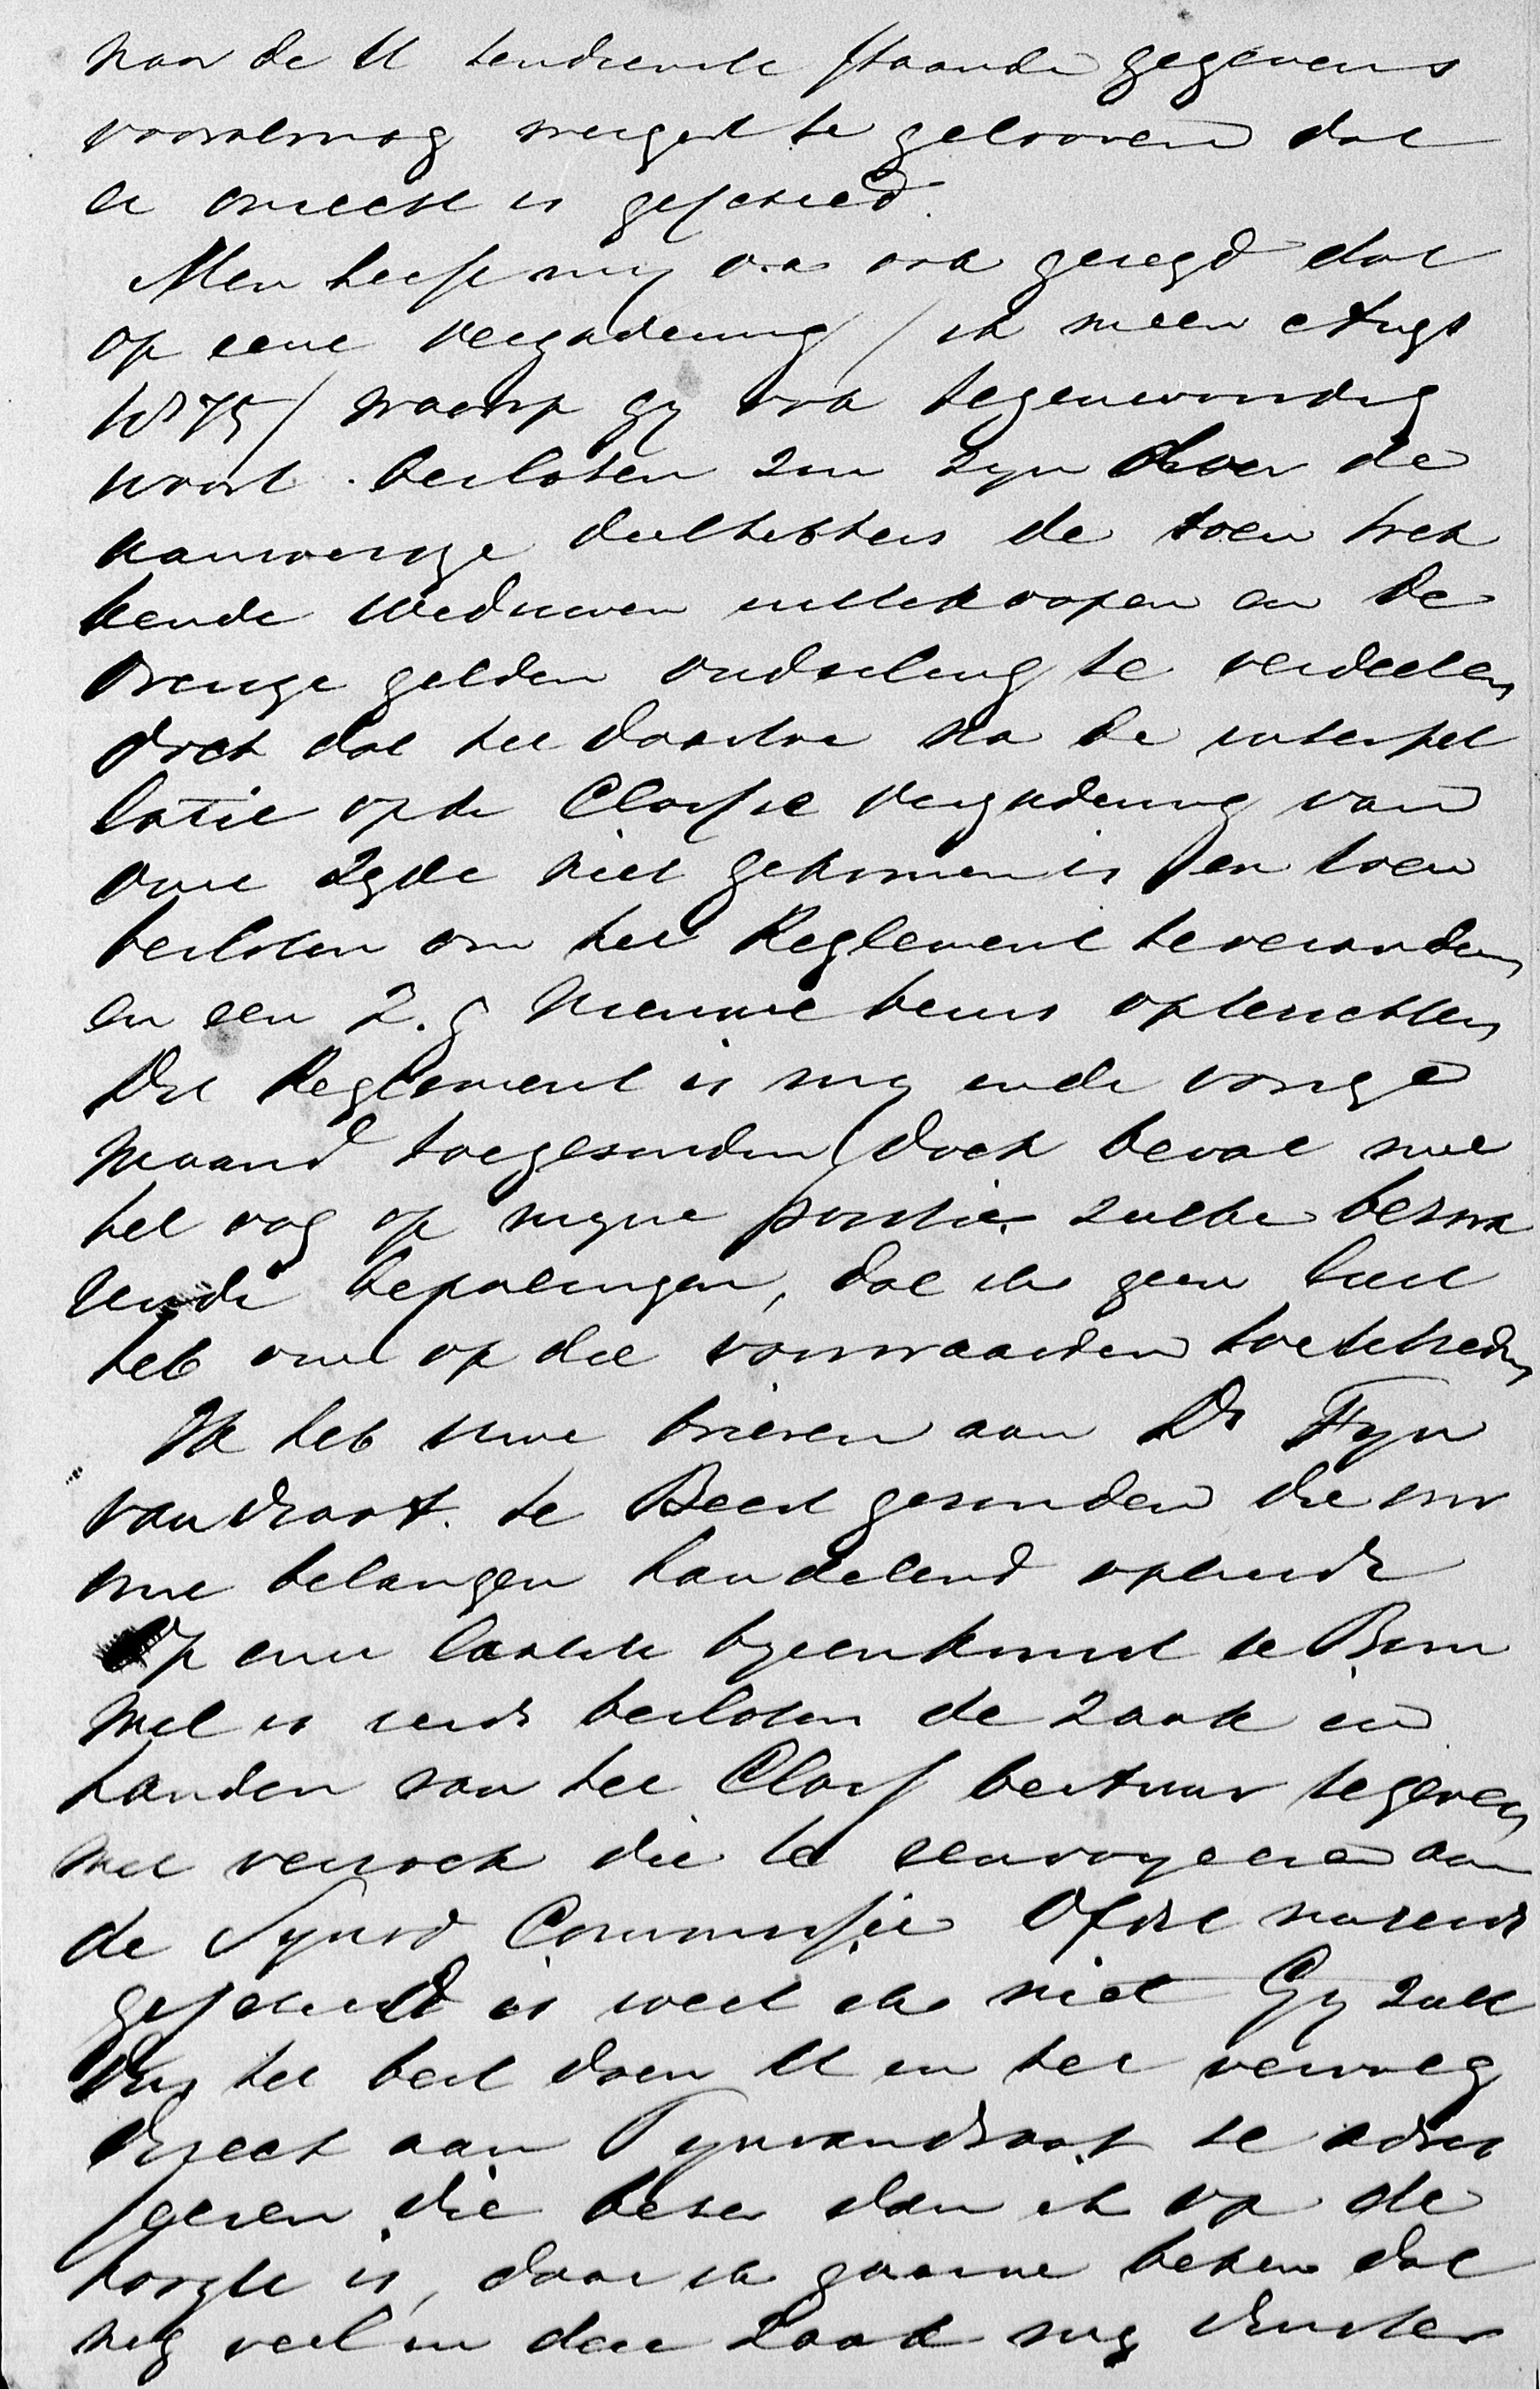 naar de U tendienste staande gegevens
vooralsnog weigert te gelooven dat
er onrecht is geschied.
Men heeft my o.a. ook gezegd dat
op eene vergadering / ik meen Augs
1875 / waarop gy ook tegenwoordig
waart. besloten zou zyn door de
aanwezige deelhebbers de toen trek
kende Weduwen uittekoopen en de
overige gelden onderling te verdeelen
doch dat het daartoe na de interpel
latie op de Classe vergadering van
onze zyde niet gekomen is en toen
besloten om het Reglement te veranderen
en een z.g Nieuwe beurs opterichten
Dit Reglement is my einde vorige
maand toegezonden doch bevat met
het oog op myne positie zulke bezwa
rende bepalingen, dat ik geen lust
heb om op die voorwaarden toetetreden
Ik heb uwe brieven aan Ds Fyn
van Draat. te Beest gezonden die voor
onze belangen handelend optreedt
Op onze laatste byeenkomst te Bom
mel is reeds besloten de zaak in
handen van het Class bestuur tegeven
met verzoek die te renvoyeeren aan
de Synod Commissie Of dit nu reeds
geschied is weet ik niet Gy zult
dus het best doen U in het vervolg
direct aan Fynvandraat te adres
seeren die beter dan ik op de
hoogte is, daar ik gaarne beken dat
nog veel in deze Zaak my duister